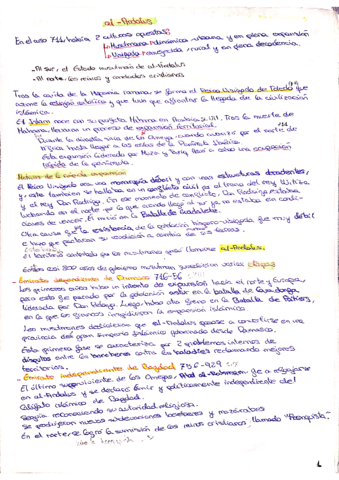 al-Ándalus
En el año 711 había 2 culturas opuestas:
→ Musulmana: dinámica, urbana y en plena expansión
→ Visigoda: arraigada, rural y en plena decadencia.
- Al sur, el Estado musulmán de al-Ándalus
- Al norte, los reinos y condados cristianos
Tras la caída de la Hispania romana, se forma el Reino Visigodo de Toledo que
asume la religión católica y que tuvo que afrontar la llegada de la civilización
islámica.
El Islam nace con su profeta Mahoma en Arabia S.VII. Tras la muerte de
Mahoma, llevaron un proceso de expansión territorial.
Durante la dinastía de los Omeya, cuando por el norte de
África hasta llegar a las costas de la Península Ibérica.
Esta expansión liderada por Muza y Tariq llevó a cabo una ocupación
rápida de la península.
Motivos de la rápida expansión
El Reino Visigodo era una monarquía débil y con unas estructuras decadentes,
y este también se hallaba en un conflicto civil por el trono del rey Witiza
y el rey Don Rodrigo. En ese momento de conflicto, Don Rodrigo estaba
luchando en el norte por lo que cuando llegó al sur ya no estaba en condi-
ciones de vencer. Él murió en la Batalla de Guadalete.
Otra causa fue la resistencia de la población hispano-visigoda que fue muy débil
e hubo que pactaron su rendición a cambio de sus tierras.
El territorio controlado por los musulmanes pasó llamarse al-Ándalus.
Existen casi 800 años de gobierno musulmán, sucedieron varias etapas
- Emirato dependiente de Damasco 716-56
Los primeros años hubo un intento de expansión hacia el norte y Europa,
pero esto fue parado por la población astur en la batalla de Covadonga
liderada por Don Pelayo. Luego hubo otro freno en la Batalla de Poitiers,
en la que los francos impidieron la expansión islámica.
Los musulmanes decidieron que al-Ándalus pasase a convertirse en una
provincia del gran Imperio Islámico gobernado desde Damasco.
Esta primera fase se caracteriza por 2 problemas internos de
disputas entre los bereberes contra los baladíes reclamando mejores
territorios.
- Emirato independiente de Bagdad 756-929
El último superviviente de los Omeyas, Abd al-Rahman I va a refugiarse
en al-Ándalus y se declaró Emir y políticamente independiente del
Califato islámico de Bagdad.
Seguía reconociendo su autoridad religiosa.
Se produjeron nuevas sublevaciones bereberes y mozárabes
En el norte, se logró la sumisión de los reinos cristianos, llamado "Reconquista".
1